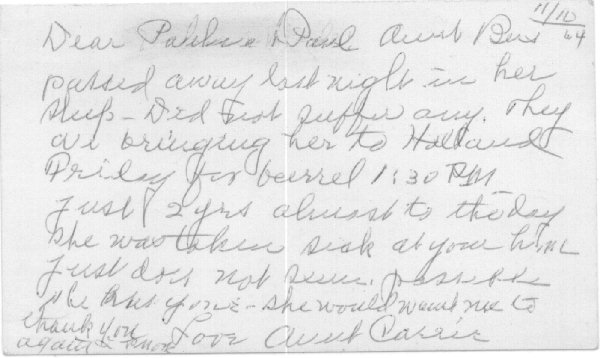 11/10
64
Dear Pauline & Paul Aunt Bus
passed away last night in her
sleep - Did not suffer any. They
are bringing her to Holland
Friday for burrel 1:30 PM
Just 2 yrs almost to the day
she was taken sick at your home
Just does not seem possible
she has gone - she would want me to
thank you
again Love Aunt Carrie